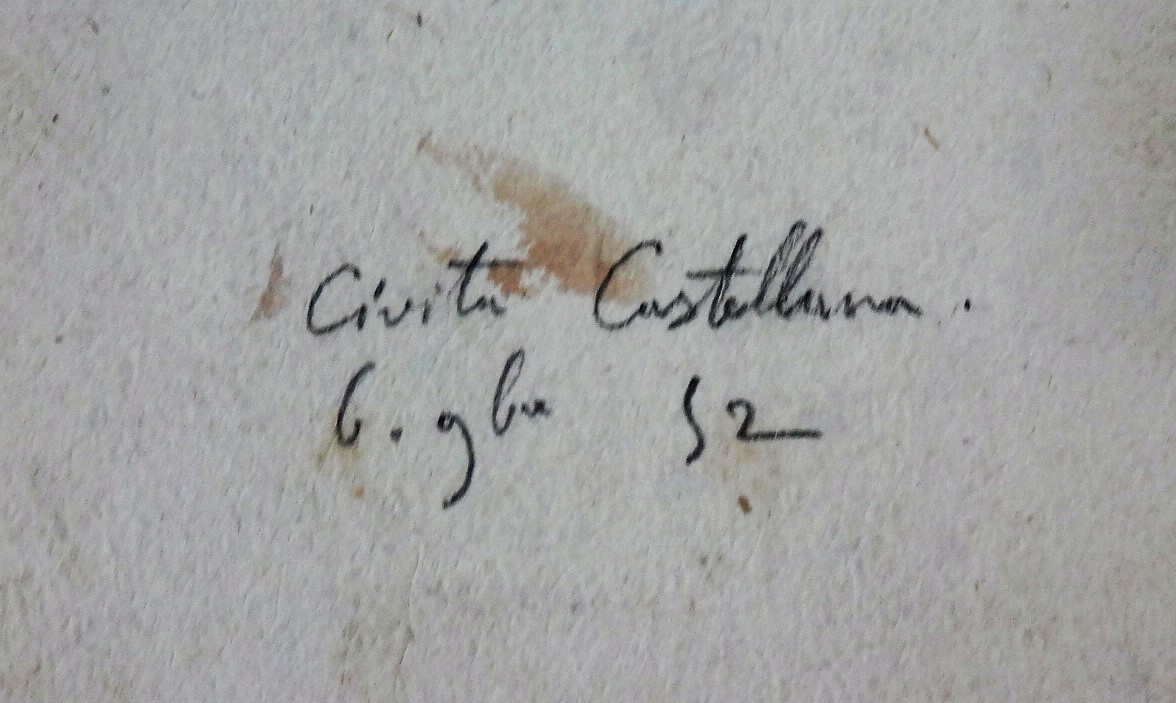 Civita Castellana.
6. 9bre 52